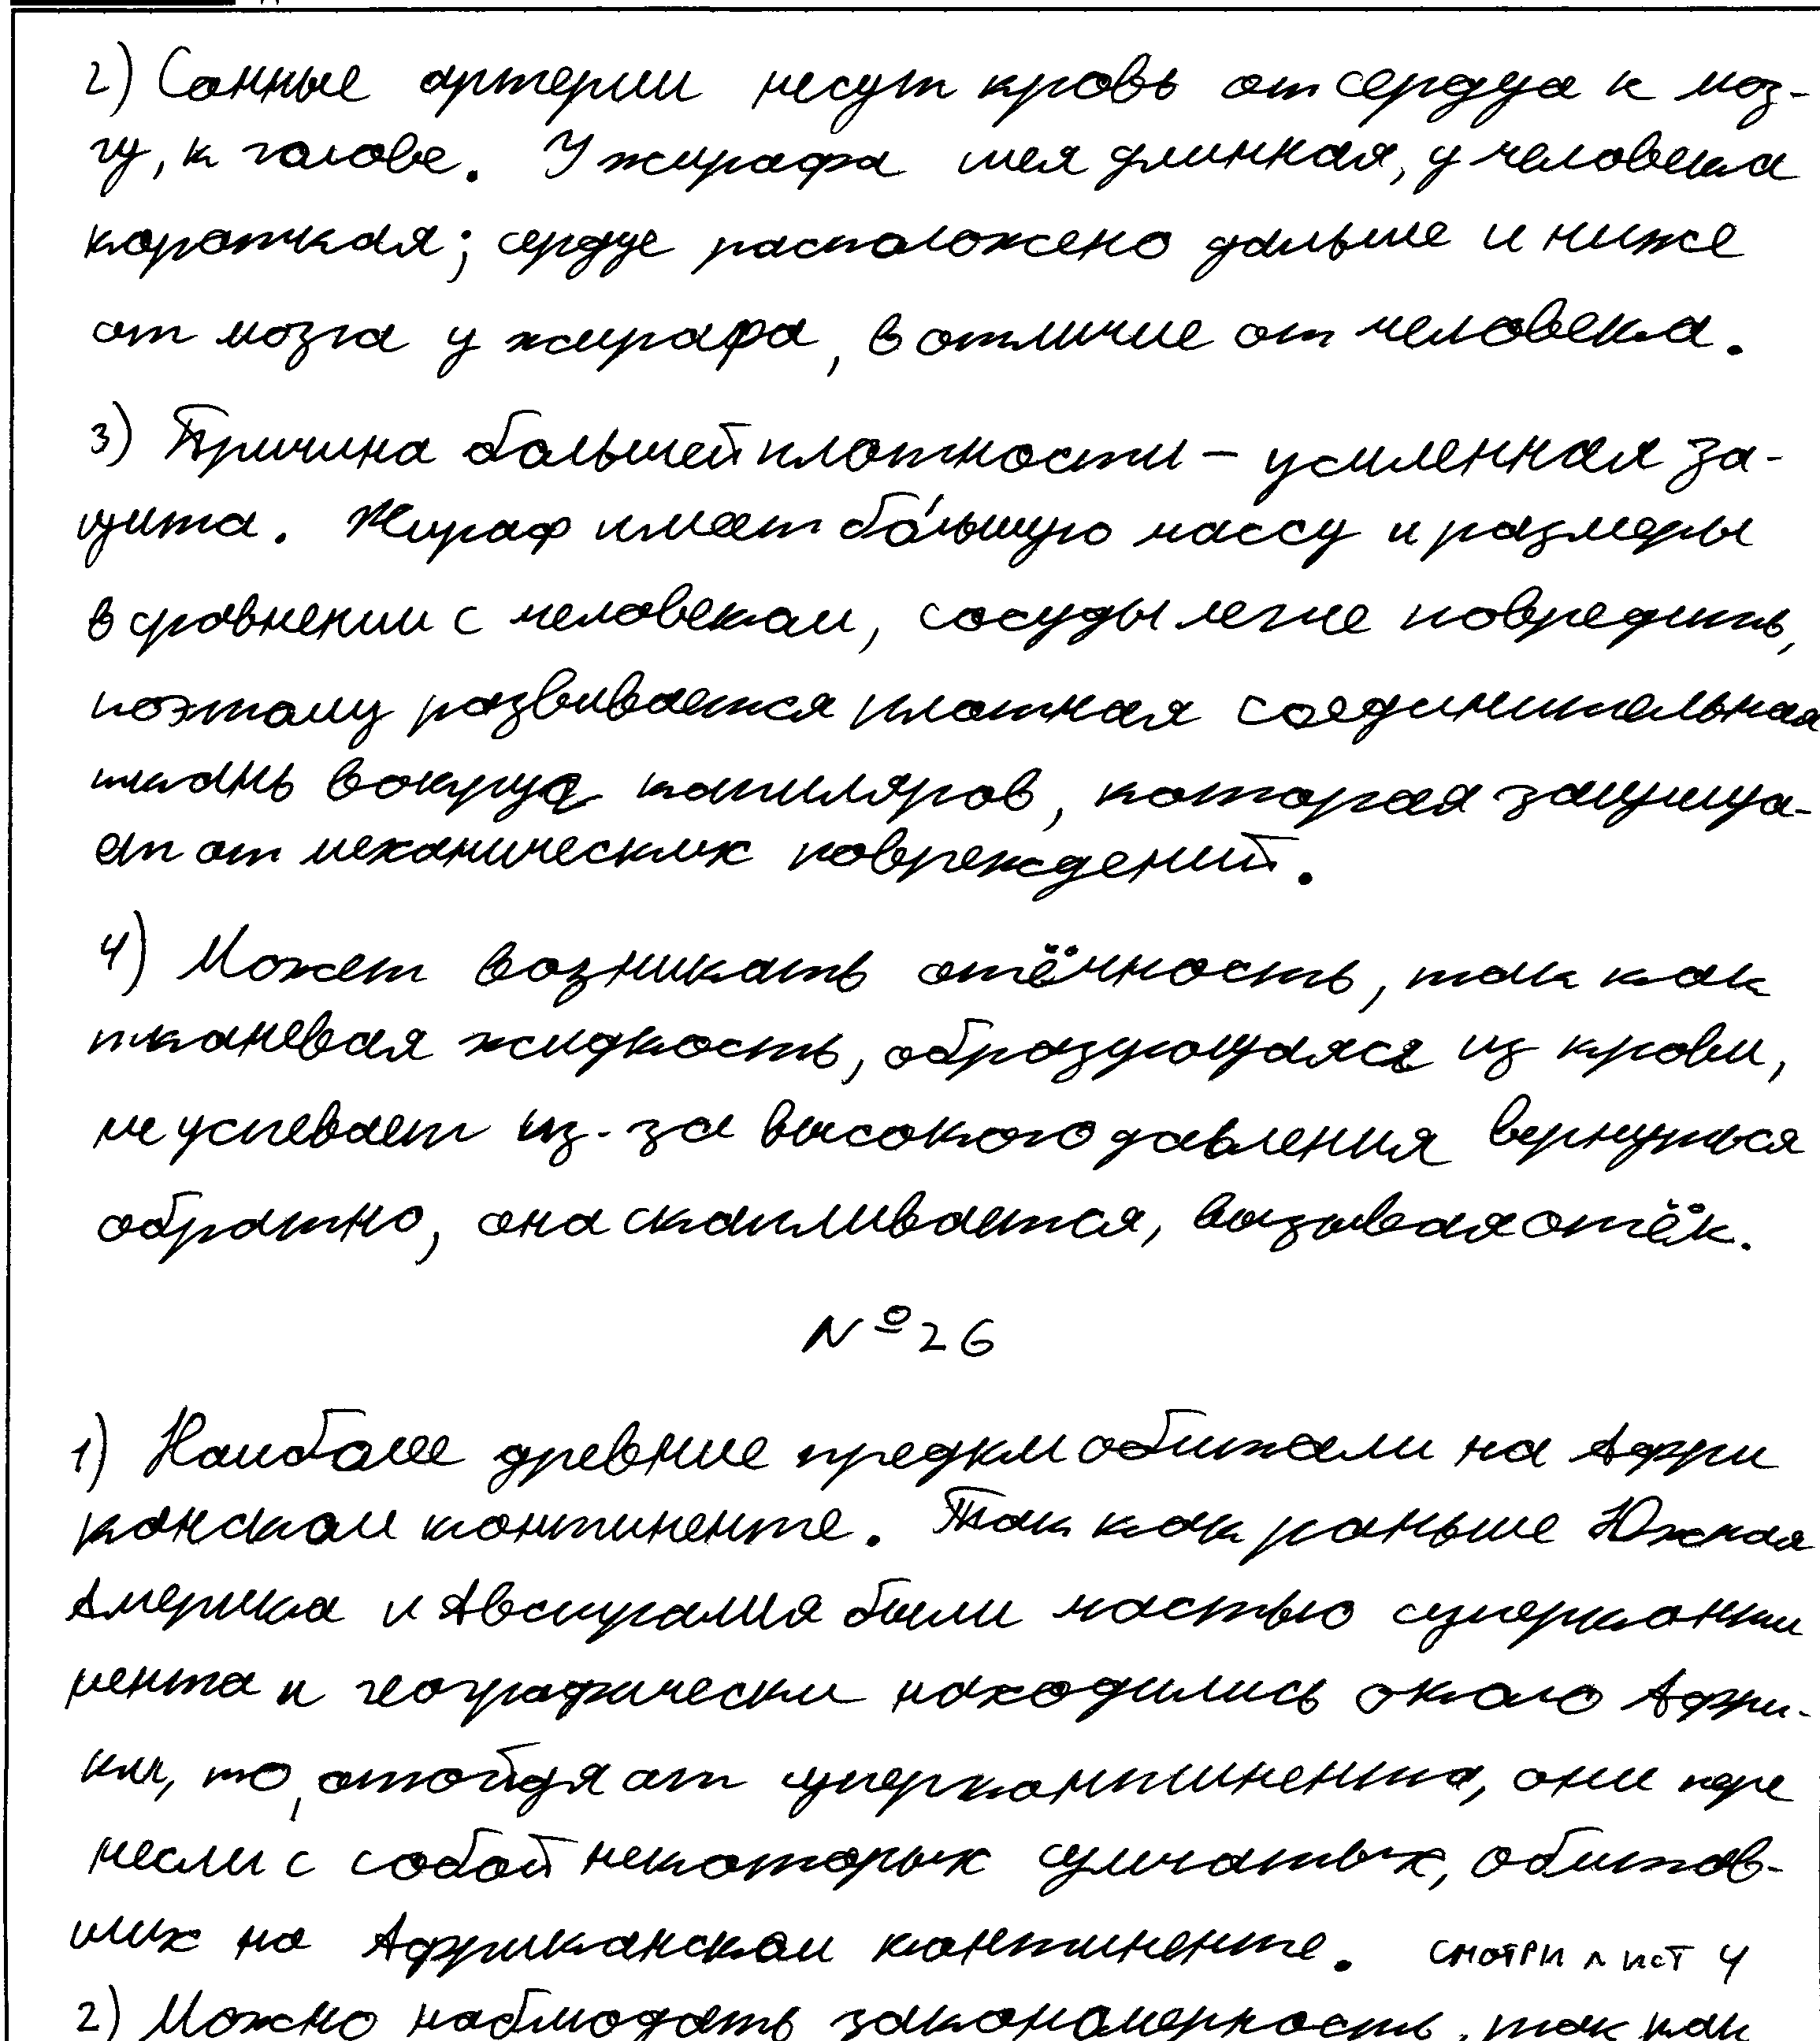 2) Сонные артерии несут кровь от сердца к моз-
гу, к голове. У жирафа шея длинная, у человека
короткая; сердце расположено дальше и ниже
от мозга у жирафа, в отличие от человека.
3) Причина большей плотности – усиленная за-
щита. Жираф имеет бо́льшую массу и размеры
в сравнении с человеком, сосуды легче повредить,
поэтому развивается плотная соединительная
ткань вокруг капиляров, которая защища-
ет от механических повреждений.
4) Может возникать отёчность, так как
тканевая жидкость, образующаяся из крови,
не успевает из-за высокого давления вернуться
обратно, она скапливается, вызывая отёк.
№26
1) Наиболее древние предки обитали на Афри
канском континенте. Так как раньше Южная
Америка и Австралия были частью суперконти
нента и географически находились около Афри-
ки, то, отойдя от суперконтинента, они пере
несли с собой некоторых сумчатых, обитав-
ших на Африканском континенте. СМОТРИ ЛИСТ 4
2) Можно наблюдать закономерность, так как